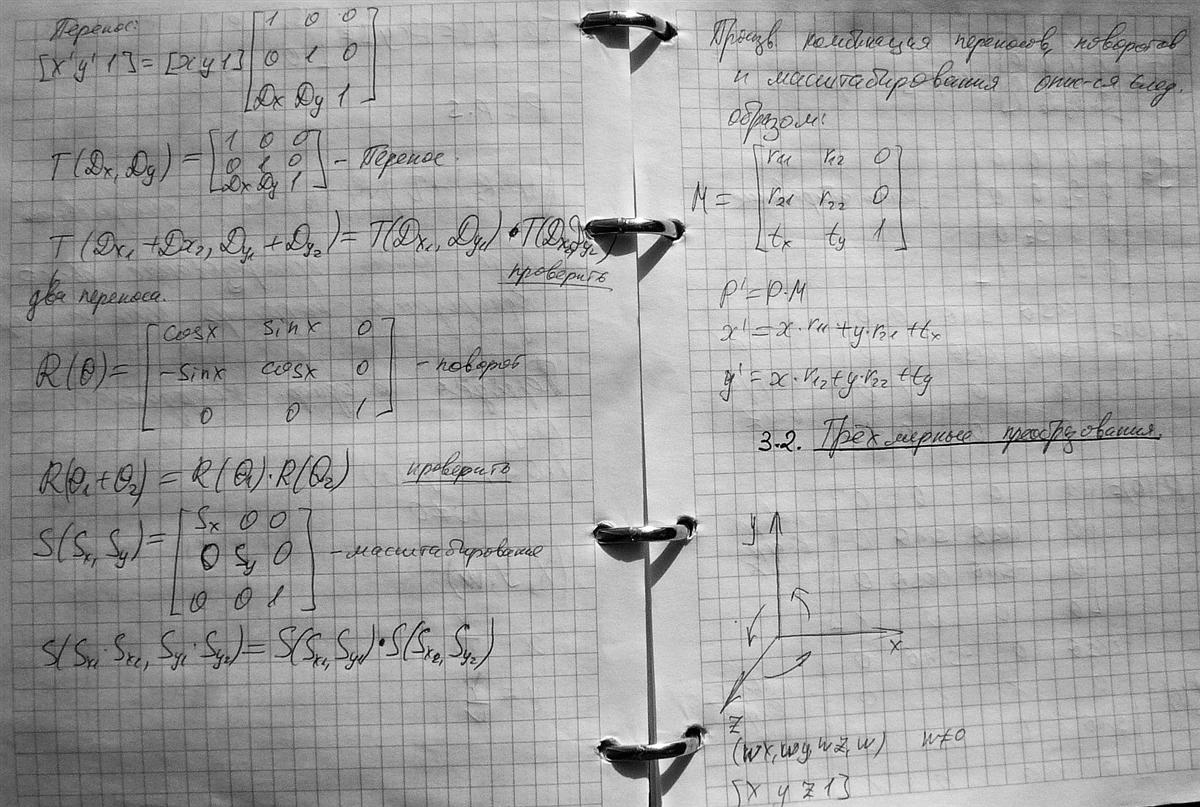 Перенос:
[x' y' 1] = [x y 1] [1 0 0
0 1 0
Dx Dy 1]
T(Dx, Dy) = [1 0 0
0 1 0
Dx Dy 1] - Перенос.
T(Dx₁ + Dx₂, Dy₁ + Dy₂) = T(Dx₁, Dy₁) · T(Dx₂, Dy₂)
проверить
два переноса.
R(θ) = [cosx sinx 0
-sinx cosx 0
0 0 1] - поворот
R(θ₁ + θ₂) = R(θ₁) · R(θ₂) проверить
S(Sx, Sy) = [Sx 0 0
0 Sy 0
0 0 1] - масштабирование
S(Sx₁ · Sx₂, Sy₁ · Sy₂) = S(Sx₁, Sy₁) · S(Sx₂, Sy₂)
Произв комбинация переносов, поворотов
и масштабирования опис-ся след.
образом:
M = [r₁₁ r₁₂ 0
r₂₁ r₂₂ 0
tx ty 1]
P' = P · M
x' = x · r₁₁ + y · r₂₁ + tx
y' = x · r₁₂ + y · r₂₂ + ty
3.2. Трёхмерные преобразования.
y
x
z
(wx, wy, wz, w) w≠0
[x y z 1]